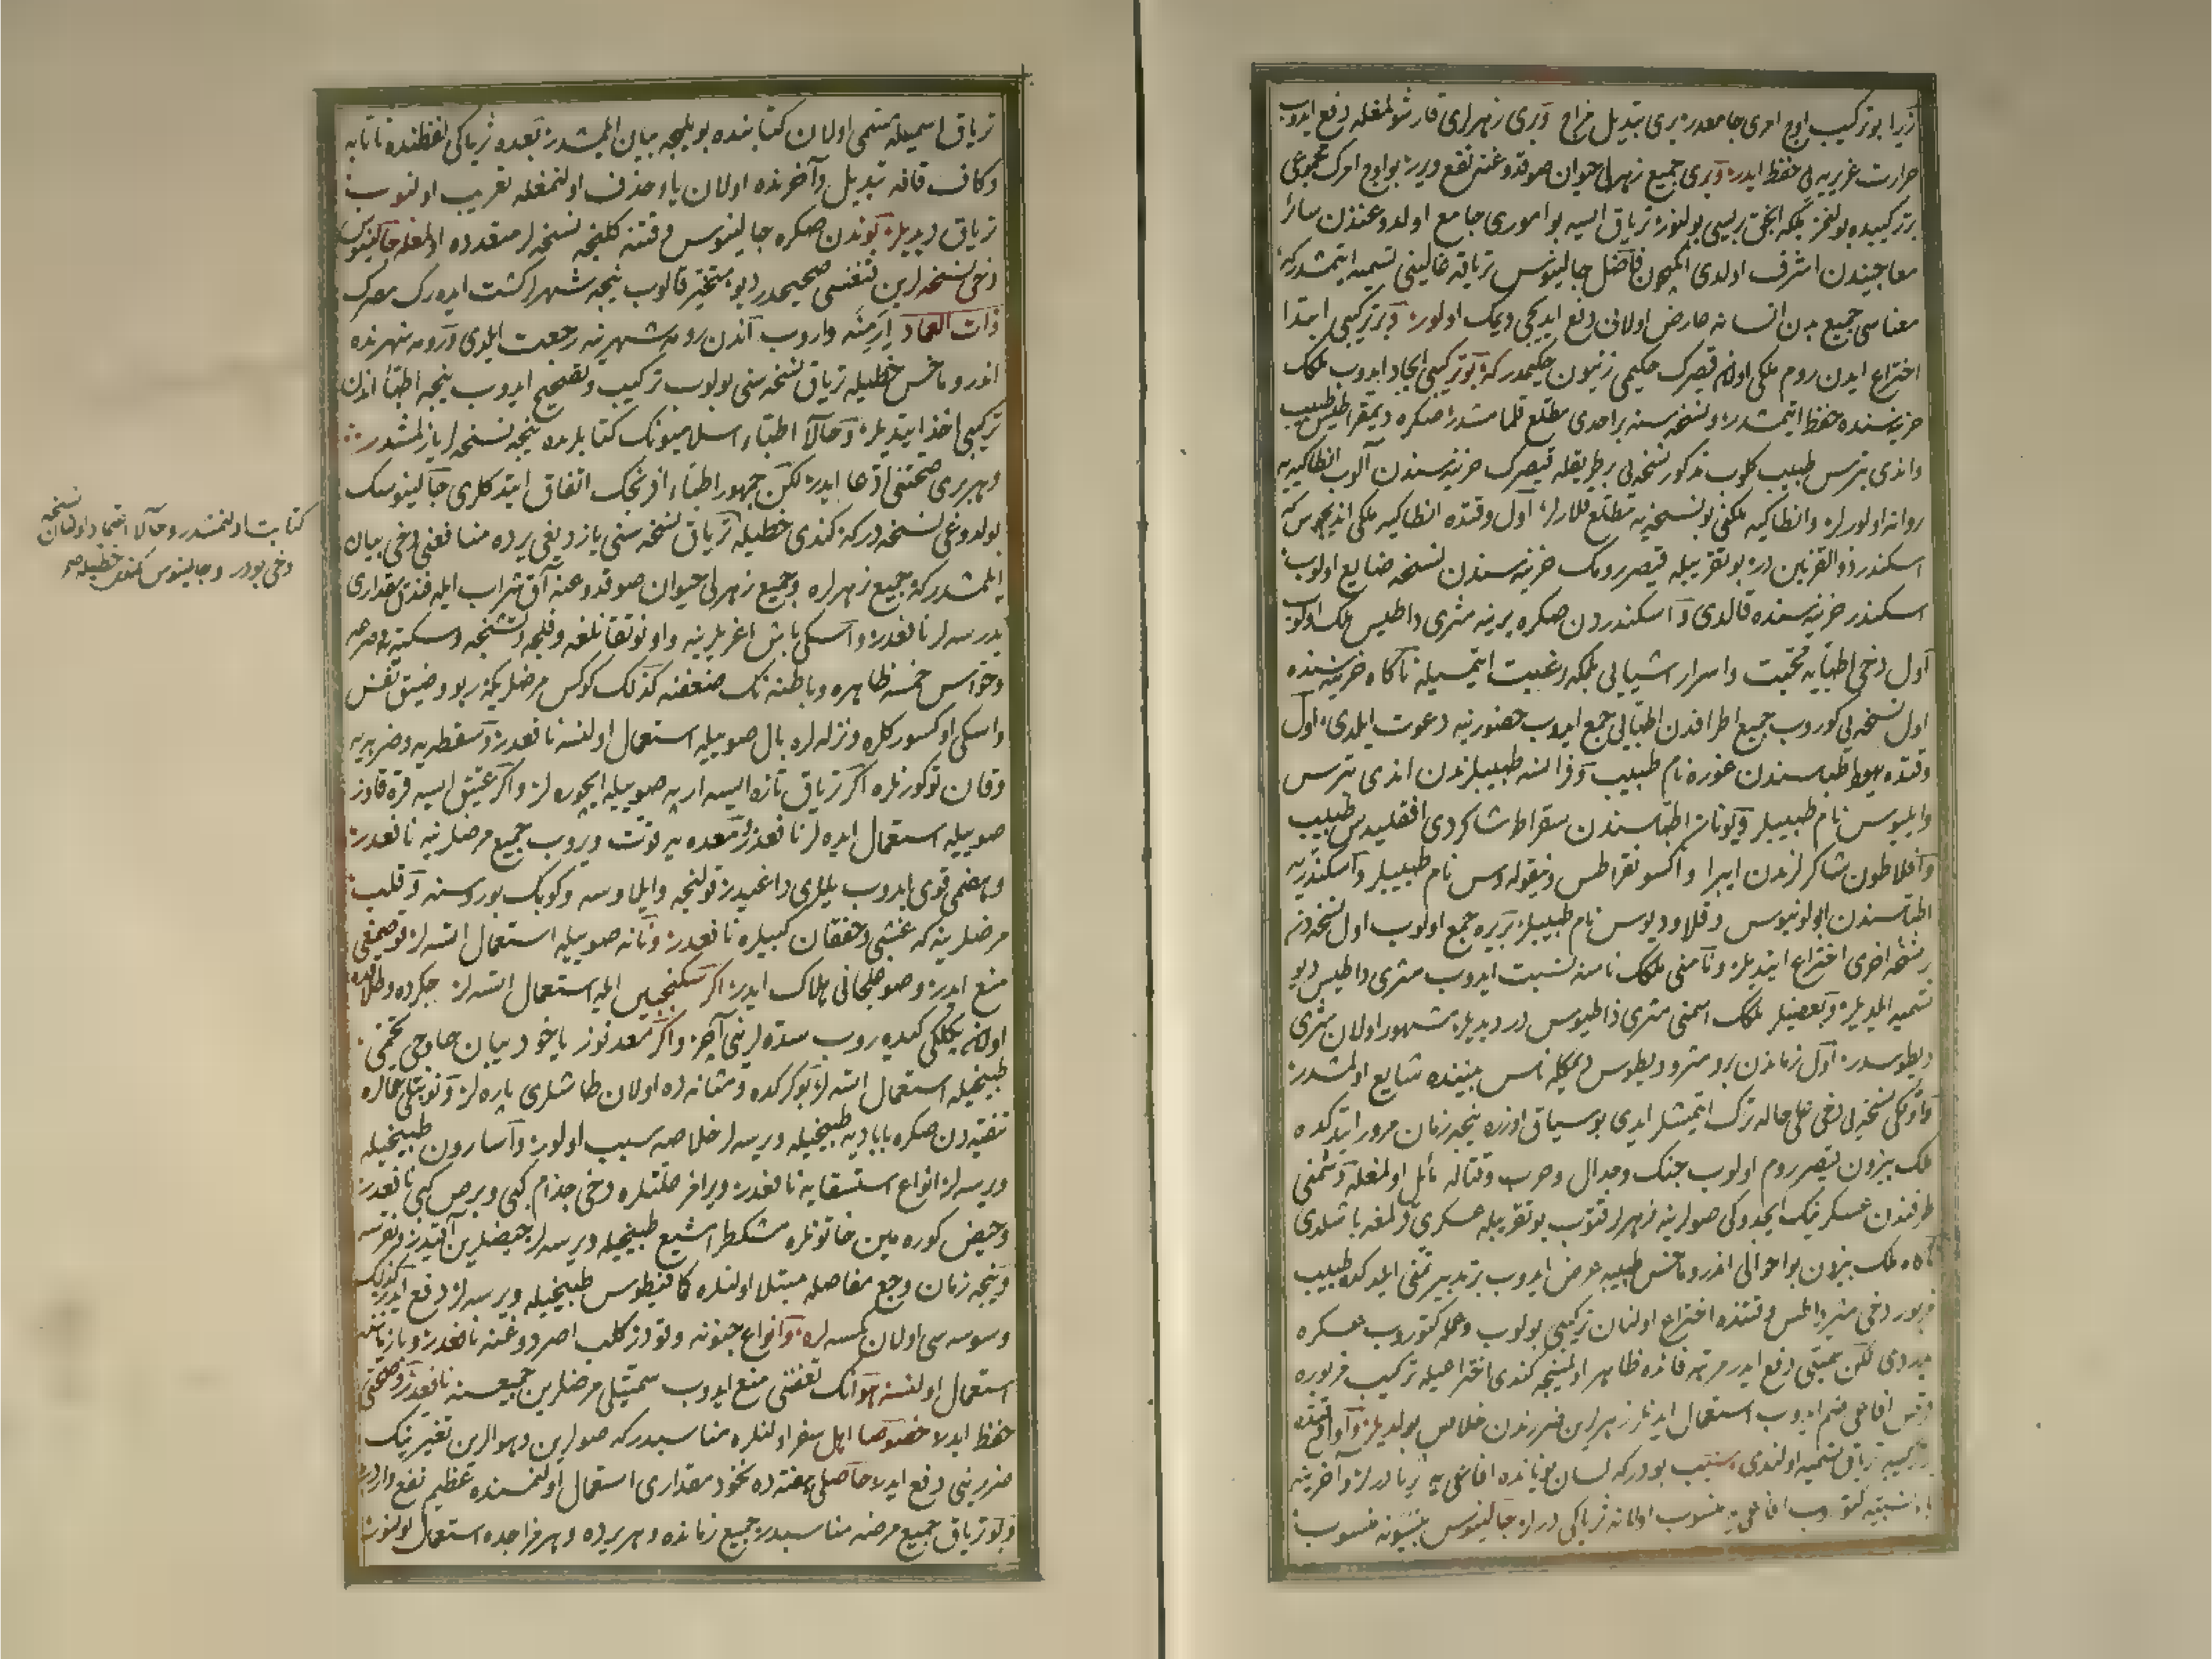 زیرا بو ترکیب اوچ امری جامعدر بری تبدیل مزاج و بری زهرلری قارشولمغله دفع ایدوب
حرارت غریزیه یی حفظ ایدر و بری جمیع زهرلی حیوان صوقدوغنه نفع ویرر بو اوچ امرک مجموعی
بر ترکیبده بولنمز بلکه انجق بریسی بولنور تریاق ایسه بو اموری جامع اولدوغندن سائر
معاجیندن اشرف اولدی انکچون فاضل جالینوس تریاقه غالینی تسمیه ایتمشدر که
معناسی جمیع بدن انسانه عارض اولانی دفع ایدیجی دیمک اولور و بو ترکیبی ابتدا
اختراع ایدن روم ملکی اولان قیصرک حکیمی زنیون حکیمدر که بو ترکیبی ایجاد ایدوب ملکک
خزینه سنده حفظ ایتمشدر و نسخه سنه بر احدی مطلع قلمامشدر صکره دیمقراطیس طبیب
واندی بترس طبیب کلوب مذکور نسخه یی بر طریقله قیصرک خزینه سندن آلوب انطاکیه یه
روانه اولورلر و انطاکیه ملکنی بو نسخه یه مطلع قلارلر اول وقتده انطاکیه ملکی
اسکندر ذو القرنین در بو تقریبله قیصر رومک خزینه سندن نسخه ضایع اولوب
اسکندر خزینه سنده قالدی و اسکندردن صکره یرینه مثری داطیس ملک اولوب
اول دخی اطبایه محبت و اسرار اشیایی بلمکه رغبت ایتمسیله ناکاه خزینه سنده
اول نسخه یی کوروب جمیع اطرافدن اطبایی جمع ایدوب حضورینه دعوت ایلدی اول
وقتده اطباسندن غوره نام طبیب و فرانسه طبیبلرندن اندی بترس
وایلیوس نام طبیبلر و یونان اطباسندن سقراط شاکردی اقلیدس طبیب
و افلاطون شاکرلرندن ایبرا و اکسو نقراطس و نیقوله وس نام طبیبلر و اسکندریه
اطباسندن ابولونیوس و قلاودیوس نام طبیبلر بریره جمع اولوب اول نسخه دن
بر نسخه اخری اختراع ایتدیلر و نامنی ملکک نامنه نسبت ایدوب مثری داطیس دیو
تسمیه ایلدیلر و بعضیلر ملکک اسمنی مثری داطیوس در دیدیلر مشهور اولان مثری
دیطوسدر اول زماندن برو مثرودیطوس دیمکله ناس بیننده شایع اولمشدر
و اولکی نسخه یی دخی علی حاله ترک ایتمشلر ایدی بو سیاق اوزره نیجه زمان مرور ایتدکده
ملک نیرون قیصر روم اولوب جنک و جدال و حرب و قتاله مائل اولمغله دشمنی
طرفندن عسکرینک ایجدوکی صولرینه زهرلر قتوب بو تقریبله عسکری اولمغه باشلدی
ملک نیرون بو احوالی اندروماخس طبیبه عرض ایدوب بر تدبیر تمنی ایلدکده طبیب
مزبور دخی مثرداطس وقتنده اختراع اولنان ترکیبی بولوب و عمله کتوروب عسکره
ویردی لکن سمیتی دفع ایدر مرتبه فائده ظاهر اولمینجه کندی اختراعیله ترکیب مزبوره
قرص افاعی ضم ایدوب استعمال ایتدیلر زهرلرین ضررندن خلاص بولدیلر
ترکیبه تریاق تسمیه اولندی سبب بودر که لسان یونانده افاعی یه ثریا دیرلر و آخرینه
یاء نسبتیه کتوروب افاعی یه منسوب اولانه ثریاکی دیرلر جالینوس بیسونه منسوب
تریاق اسمیله مسمی اولان کتابنده بویلجه بیان ایلمشدر بعده ثریاکی لفظنده ثا تایه
و کاف قافه تبدیل و آخرنده اولان یاء حذف اولنمغله تعریب اولنوب
تریاق دیدیلر بوندن صکره جالینوس وقتنه کلنجه نسخه لر متعدده اولمغله جالینوس
دخی نسخه لرین قنغیسی صحیحدر دیو متحیر قالوب نیجه شهرلر کشت ایدرک مصرک
ذات العماد ارمنه واروب آندن رومه شهرینه رجعت ایلدی و رومه شهرنده
اندروماخس خطیله تریاق نسخه سنی بولوب ترکیب و تصحیح ایدوب نیجه اطبا اندن
ترکیبی اخذ ایتدیلر و حالا اطباء اسلامیونک کتابلرنده نیجه نسخه لر یازلمشدر
و هر بری صحتنی ادعا ایدر لکن جمهور اطباء افرنجک اتفاق ایتدکلری جالینوسک
بولدوغی نسخه در که کندی خطیله تریاق نسخه سنی یازدیغی یرده منافعنی دخی بیان
ایلمشدر که جمیع زهرلره و جمیع زهرلی حیوان صوقدوغنه آق شراب ایله فندق مقداری
ویرسه لر نافعدر و اسکی باش اغریلرینه و اونوتقانلغه و فلجه و تشنجه و سکته یه و صرعه
و حواس خمسه ظاهره و باطنه نک ضعفنه کذلک کوکس مرضلرینه ربو و ضیق نفس
و اسکی اوکسورکلره و نزله لره بال صوییله استعمال اولنسه نافعدر و سقطه یه و ضربه یه
و قان توکورنلره اکر تریاق تازه ایسه ارپه صوییله ایچوره لر و اکر عتیق ایسه قره قاوز
صوییله استعمال ایده لر نافعدر و معده یه قوت ویروب جمیع مرضلرینه نافعدر
و هضمی قوی ایدوب یللری داغیدر قولنجه و ایلاوسه و کوبک بوروسنه و قلب
مرضلرینه که غشی و خفقان کبیلره نافعدر و نانه صوییله استعمال اتسه لر قوصمغی
منع ایدر و صوغلجانی هلاک ایدر اکر سکنجبین ایله استعمال اتسه لر جکرده و طلاقده
اولان بکلکی کیده روب سده لرینی آچر و اکر معدنوز یاخود یبان هاوجی تخمی
طبیخیله استعمال اتسه لر بوکرکده و مثانه ده اولان طاشلری پاره لر و نوبتلی حماره
تنقیه دن صکره بابادیه طبیخیله ویرسه لر خلاصه سبب اولور و آسارون طبیخیله
ویرسه لر انواع استسقایه نافعدر و یرامز علتلره دخی جذام کبی و برص کبی نافعدر
و حیض کوره مین خاتونلره مشکطرامشیع طبیخیله ویرسه لر حیضلرین آقیدر و نقرسه
و نیجه زمان وجع مفاصله مبتلا اولنلره کافیطوس طبیخیله ویرسه لر دفع ایدر کذلک
وسوسه سی اولان کمسه لره و انواع جنونه و قودز کلب اصردوغنه نافعدر و یاز ایامنده
استعمال اولنسه هوانک تعفننی منع ایدوب سمیتلی مرضلرین جمیعسنه نافعدر و صحتی
حفظ ایدر خصوصا اهل سفر اولنلره مناسبدر که صولرین و هوالرین تغییرینک
ضررینی دفع ایدر حاصلی هفته ده نخود مقداری استعمال اولنمسنده عظیم نفع واردر
و بو تریاق جمیع مرضه مناسبدر جمیع زمانده و هر یرده و هر مزاجده استعمال اولنور
کتابت اولنمشدر و حالا اعتماد اولنان نسخه
دخی بودر و جالینوس کندی خطیله صح